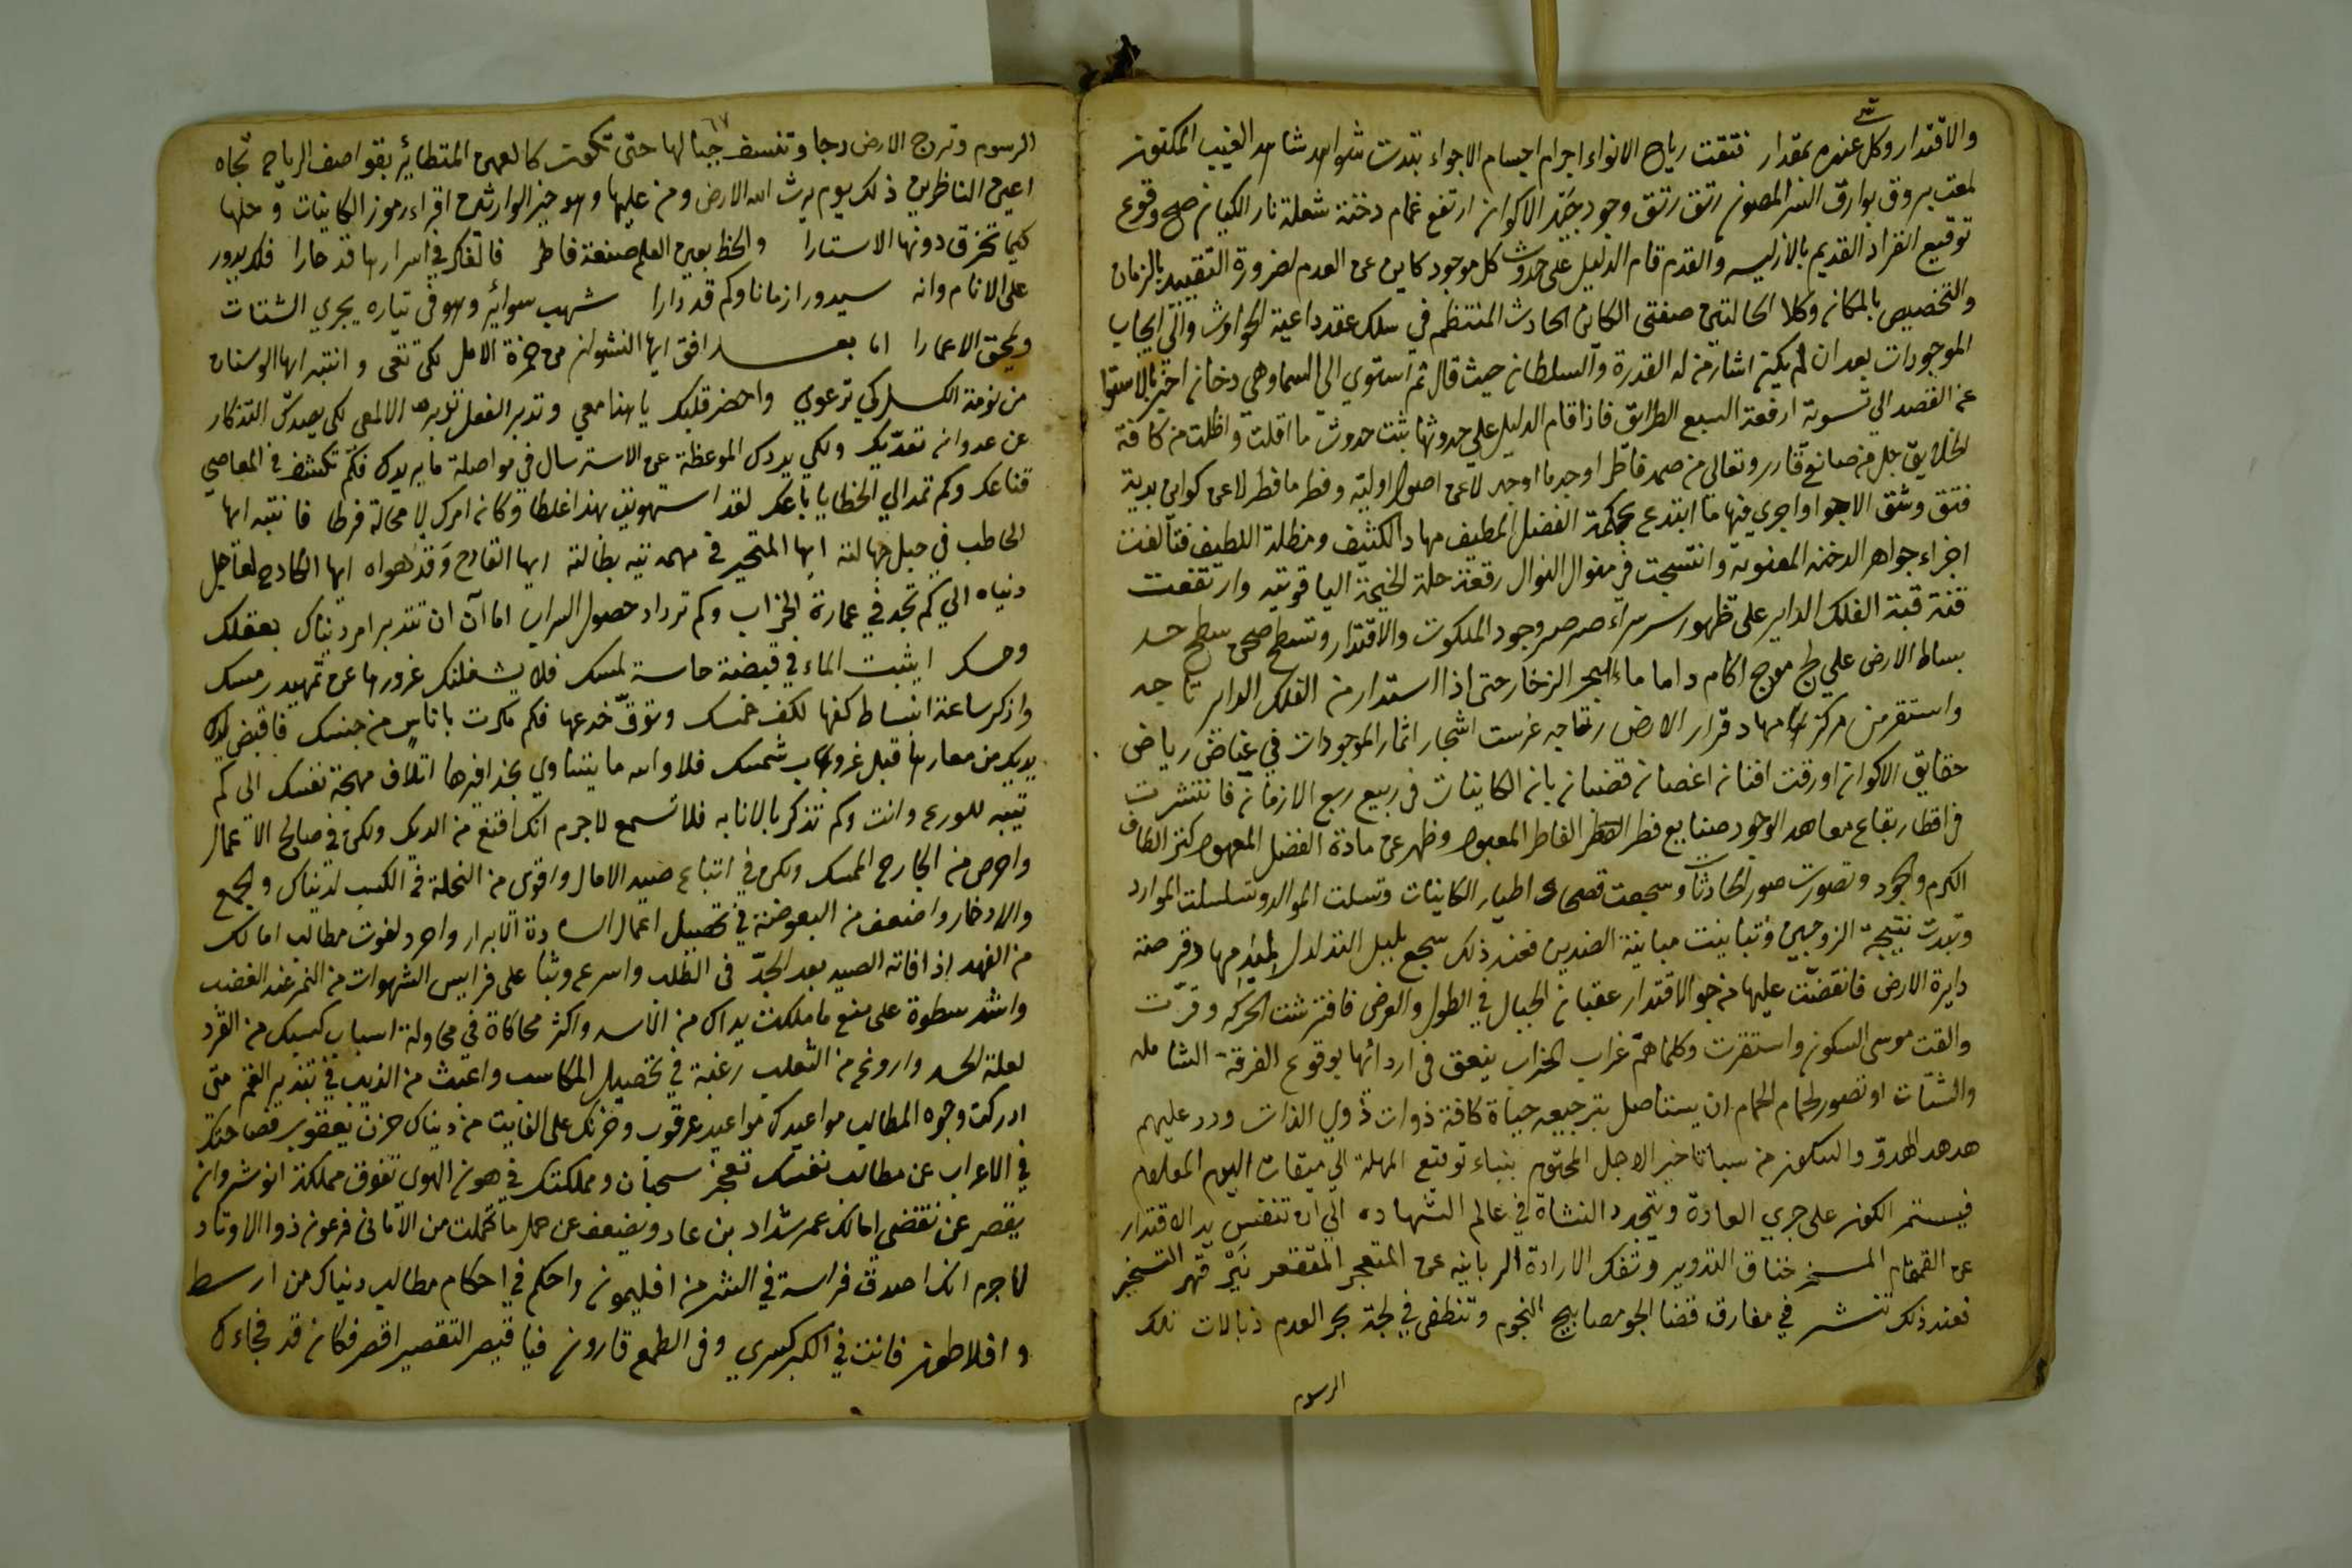 والاقتدار وكل شي عنده بمقدار فتقت رياح الانواء اجرام اجسام الاجواء بتدت شواهد الغيب المكنون
لمعت بروق بوارق السر المصون رتق وجود الاكوان ارتفع غمام دخنة شعلة نار الكيان صح وقوع
توقيع انفراد القديم بالازليه والقدم قام الدليل على حدوث كل موجود كاين عن العدم لضرورة التقييد بالزمان
والتخصيص بالمكان وكلا الحالتين صفتى الكاين الحادث المنتظم في سلك عقد داعية الحوادث والى ايجاب
الموجودات بعد ان لم يكن اشار من له القدرة والسلطان حيث قال ثم استوي الى السما وهي دخان اخبر بالاستوا
عن القصد الى تسوية ارفعة السبع الطرائق فاذا قام الدليل على حدوثها ثبت حدوث ما اقلت واظلت من كافة
الخلايق جل من صانع قادر وتعالى من صمد فاطر اوجد ما اوجد لا عن اصول اوليه وفطر ما فطر لا عن كواين بدية
فتق وشق الاجوا واجرى فيها ما ابتدع بحكمة الفضل مهاد الكثيف ومظلة اللطيف فتالفت
اجزاء جواهر الدخنه المعنوية وانتسجت في منوال النوال رقعة حلة الخيمة الياقوتيه وارتفعت
قنة قبة الفلك الداير على ظهور صرصر وجود الملكوت والاقتدار سطح
بساط الارض علي لج موج اكام داما ماء البحر الزخار حتى اذا استدار من الفلك الداير تاجه
واستقر من مركز مهاد قرار الارض رتاجه غرست اشجار اثمار الموجودات في غياض رياض
حقايق الاكوان اورقت افنان اغصان قضبان بان الكاينات في ربيع ربع الازمان فانتشرت
في اقطار بقاع معاهد الوجود صنايع فطر الفاطر المعبود وظهر عن مادة الفضل المعهود كنز الطاف
الكرم والجود وتصورت صور الحادثات وسجعت فصحاء اطيار الكاينات وتسلسلت الموارد
وتبدت نتيجة الزوجين وتباينت مباينة الضدين فعند ذلك سجع بلبل
دايرة الارض فانقضت عليها من جو الاقتدار عقبان الجبال في الطول والعرض فافترشت الحركه وقرت
والقت موسى السكون واستقرت وكلما هم غراب الخراب ينعق في ارداتها بوقوع الفرقة الشامله
والشتات او تصور لحمام الحمام ان يستاصل بترجيعه حياة كافة ذوات ذوي الذات ورد عليهم
هدهد الهدو والسكون من سبا تاخير الاجل المحتوم بنباء توقيع المهلة الي ميقات اليوم المعلوم
فيستمر الكون على جري العادة ويتجدد النشاة في عالم الشهاده الي ان تنفس يد الاقتدار
عن القمقام المسخر خناق التدوير وتفك الارادة الربانيه عن المتعجر المتقعر قهر التسخير
فعند ذلك تنشر في مفارق فضا الجو مصابيح النجوم وتنطفى في لجة بحر العدم ذبالات تلك
الرسوم
٦٧
الرسوم وترج الارض رجا وتنسف جبالها حتى تكون كالعهن المتطائر بقواصف الرياح تجاه
اعين الناظرين ذلك يوم يرث الله الارض ومن عليها وهو خير الوارثين اقراء رموز الكاينات وحلها
كيما تخرق دونها الاستارا والحظ بعين العلم صنعة فاطر فالفكر في اسرارها قد حارا فلك يدور
على الانام وانه سيدور ازمانا وكم قد دارا شهب سوائر وهو في تياره يجري الشتات
ويمحق الاعمارا اما بعد افق ايها النشوان من خمرة الامل لكي تعى وانتبه ايها الوسنان
من نومة الكسل كي ترعوي واحضر قلبك يا هنا معي وتدبر الفعل تدبر الالمعي لكي يصدك التذكار
عن عدوان تعديك ولكي يردك الموعظة عن الاسترسال في مواصلة ما يرديك فكم تكشف في المعاصي
قناعك وكم تمد الي الخطايا باعك لقد استهونت بهذا غلطا وكان امرك لا محالة فرطا فانتبه ايها
الحاطب في حبل جهالته ايها المتحير في مهمه تيه بطالته ايها القادح زند هواه ايها الكادح لعاجل
دنياه الي كم تجد في عمارة الخراب وكم ترداد حصول السراب اما آن ان تتدبر امر دنياك بعقلك
وحسك ايثبت الماء في قبضة حاسة لمسك فلا يشغلنك غرورها عن تمهيد رمسك
واذكر ساعة انبساط كفها لكف خمسك وتوق خدعها فكم مكرت باناس من جنسك فاقبض
يديك من معارها قبل غروب شمسك فلا والله ما يتساوي بحذافيرها اتلاف مهجة نفسك الى كم
تنبه للورع وانت وكم تذكر بالانابه فلا تسمع لا جرم انك اقنع من الديك ولكن في صالح الاعمال
واحرص من الجارح الممسك ولكن في اتباع صيد الامال واقوى من النحلة في الكسب لدنياك والجمع
والادخار واضعف من البعوضة في تحصيل اعمال السادة الابرار واحرد لفوت مطالب امالك
من الفهد اذا فاته الصيد بعد الجد في الطلب واسرع وثبا على فرايس الشهوات من النمر عند الغضب
واشد سطوة على منع ما ملكت يداك من الاسد واكثر محاكاة في محاولة اسباب كسبك من القرد
لعلة الحسد واروغ من الثعلب رغبة في تحصيل المكاسب واعبث من الذيب في تبذير الغنم متى
ادركت وجوه المطالب مواعيدك مواعيد عرقوب وحزنك على الفايت من دنياك حزن يعقوب فصاحتك
في الاعراب عن مطالب نفسك تعجز سحبان ومملكتك في هون الهوى تفوق مملكة انوشروان
يقصر عن تقضى امالك عمر شداد بن عاد ويضعف عن حمل ما تحملت من الاماني فرعون ذوا الاوتاد
لا جرم انك اصدق فراسة في الشر من افليمون واحكم في احكام مطالب دنياك من ارسط
وافلاطون فانت في الكبر كسري وفي الطمع قارون فيا قيصر التقصير اقصر فكان قد فجاءك